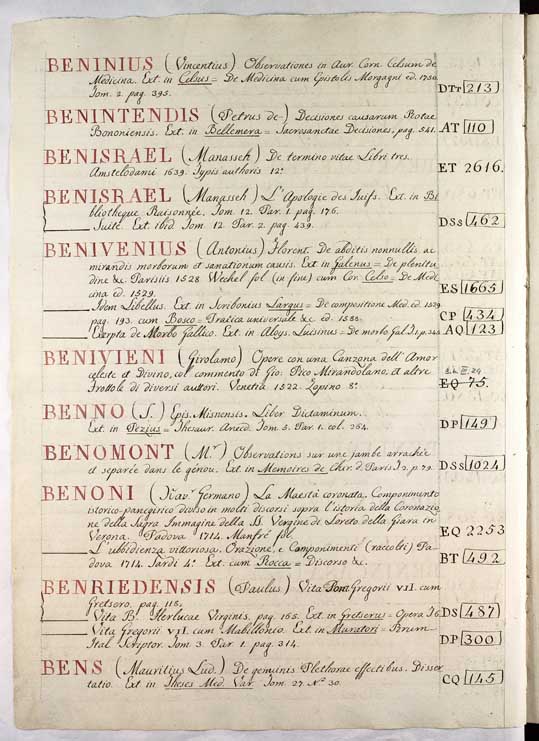 BENINIUS (Vincentius) Observationes in Aur. Corn. Celsum de
Medicina. Ext. in Celsus = De Medicina cum Epistolis Morgagni ed. 1750.
Tom. 2. pag. 395. DTT 213
BENINTENDIS (Petrus de) Decisiones causarum Rotae
Bononiensis. Ext. in Bellemera = Sacrosanctae Decisiones, pag. 541. AT 110
BENISRAEL (Manasseh) De termino vitae Libri tres.
Amstelodami 1639. Typis authoris 12º ET 2616.
BENISRAEL (Manasseh) L'Apologie des Juifs. Ext. in Bi
bliotheque Raisonnée. Tom. 12. Par. 1. pag. 176.
Suite. Ext. ibid. Tom. 12. Par. 2. pag. 439. DSs 462
BENIVENIUS (Antonius) Florent. De abditis nonnullis ac
mirandis morborum et sanationum causis. Ext. in Galenus = De plenitu
dine &c. Parisiis 1528 Wechel fol (in fine) cum Cor. Celso = De Medi
cina ed. 1529. ES 1665
Idem Libellus. Ext. in Scribonius Largus = De compositione Med. ed. 1529.
pag. 193. cum Bosco = Pratica universale &c ed. 1588. CP 434
Excerpta de Morbo Gallico. Ext. in Aloys. Luisinus = De morbo Gal. T. 1. p. 345 AQ 123
BENIVIENI (Girolamo) Opere con una Canzona dell' Amor
celeste et Divino, col commento di Gio. Pico Mirandolano, et altre
Frottole di diversi auttori. Venetia 1522. Zopino 8º EQ 75.
BENNO (S.) Epis. Misnensis. Liber Dictaminum.
Ext. in Pezius = Thesaur. Anecd. Tom. 5. Par. 1. col. 264. DP 149
BENOMONT (Mr) Observations sur une jambe arrachée
et separée dans le génou. Ext. in Memoires de Chir. d. Paris T. 2. p. 79. DSs 1024
BENONI (Germano) La Maestà coronata. Componimento
istorico-panegirico diviso in molti discorsi sopra l'istoria della Coronazio
ne della Sagra Immagine della SS. Vergine di Loreto della Giara in
Verona. Padova 1714. Manfrè fol. EQ 2253
L'ubbidienza vittoriosa, Orazione, e Componimenti (raccolti) Pa
dova 1714. Sardi 4º Ext. cum Rocca = Discorso &c. BT 492
BENRIEDENSIS (Paulus) Vita Gregorii VII. cum
Gretsero. pag. 115.
Vita B. Herlucae Virginis, pag. 165. Ext. in Gretserus = Opera T. 6. DS 487
Vita Gregorii VII. cum Mabillonio. Ext. in Muratori = Rerum
Ital. Scriptor. Tom. 3. Par. 1. pag. 314. DP 300
BENS (Mauritius Lud.) De genuinis Plethorae effectibus. Disser
tatio. Ext. in Theses Med. Var. Tom. 27. Nº 30. CQ 145